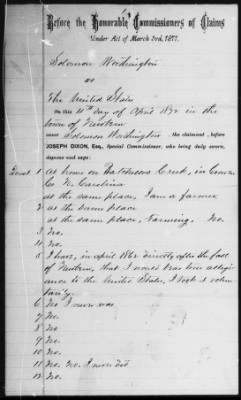 Before the Honorable Commissioners of Claims
Under Act of March 3rd, 1871.
Solomon Washington
vs
The United States
On this 11th day of April 1872 in the
town of Newbern
came Solomon Washington the claimant, before
JOSEPH DIXON, Esq., Special Commissioner, who being duly sworn,
deposes and says:
1 At home on Batchelors Creek, in Craven
Co N. Carolina
at the same place, I am a farmer
2 at the same place
at the same place, Farming. No.
3 No.
4 No.
5 I have, in April 1862 directly after the fall
of Newbern, that I would bear true allegi-
ance to the United States, I took it volun
tarily
6 No I never was
7 No.
8 No
9 No.
10 No.
11 No. No. I never did
12 No.